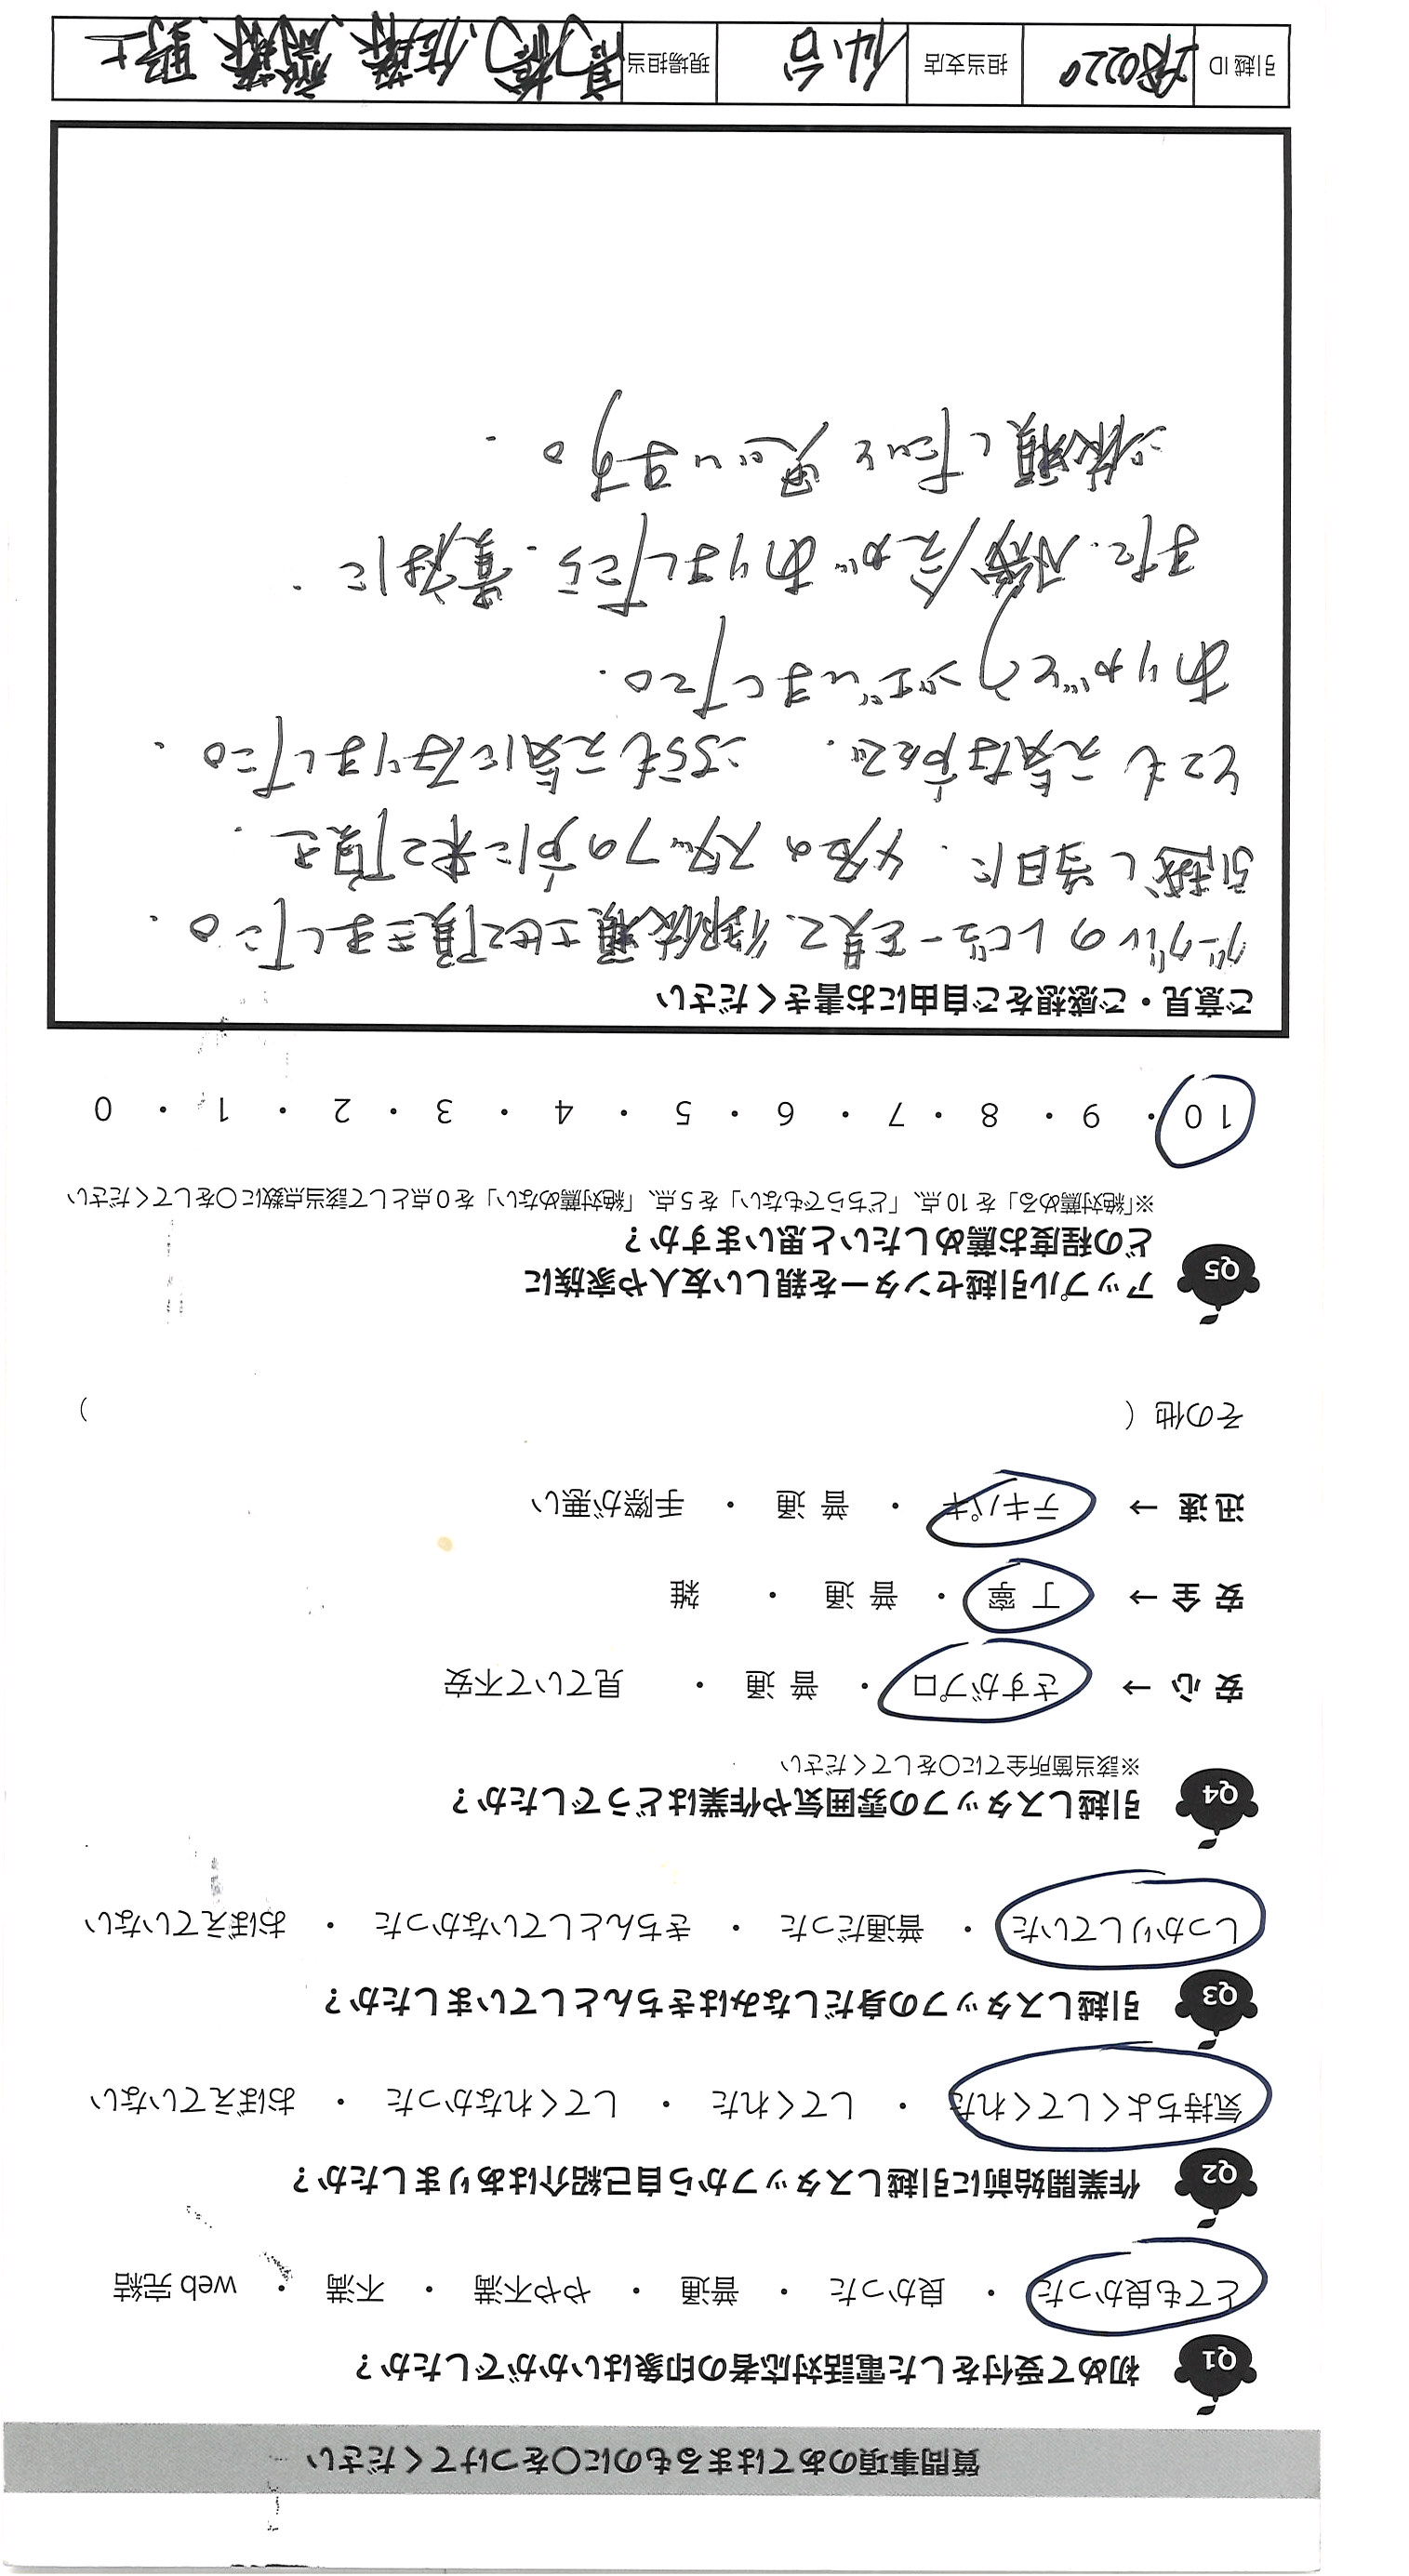 質問事項のあてはまるものに○をつけてください
Q1 初めて受付をした電話対応者の印象はいかがでしたか？
とても良かった ・ 良かった ・ 普通 ・ やや不満 ・ 不満 ・ web 完結
Q2 作業開始前に引越しスタッフから自己紹介はありましたか？
気持ちよくしてくれた ・ してくれた ・ してくれなかった ・ おぼえていない
Q3 引越しスタッフの身だしなみはきちんとしていましたか？
しっかりしていた ・ 普通だった ・ きちんとしていなかった ・ おぼえていない
Q4 引越しスタッフの雰囲気や作業はどうでしたか？
※該当箇所全てに○をしてください
安 心 → さすがプロ ・ 普 通 ・ 見ていて不安
安 全 → 丁 寧 ・ 普 通 ・ 雑
迅 速 → テキパキ ・ 普 通 ・ 手際が悪い
その他（ ）
Q5 アップル引越センターを親しい友人や家族に
どの程度お薦めしたいと思いますか？
※「絶対薦める」を 10 点、「どちらでもない」を 5 点、「絶対薦めない」を 0 点として該当点数に○をしてください
10 ・ 9 ・ 8 ・ 7 ・ 6 ・ 5 ・ 4 ・ 3 ・ 2 ・ 1 ・ 0
ご意見・ご感想をご自由にお書きください
グーグルのレビューを見て、御依頼させて頂きました。
引越し当日に、4名のスタッフの方に来て頂き、
とても元気な方々で、こちらも元気になりました。
ありがとうございました。
また、機会がありましたら、貴社に
ご依頼したいと思います。
引越 ID 担当支店 仙台 現場担当 高橋、佐藤、齋藤、野上